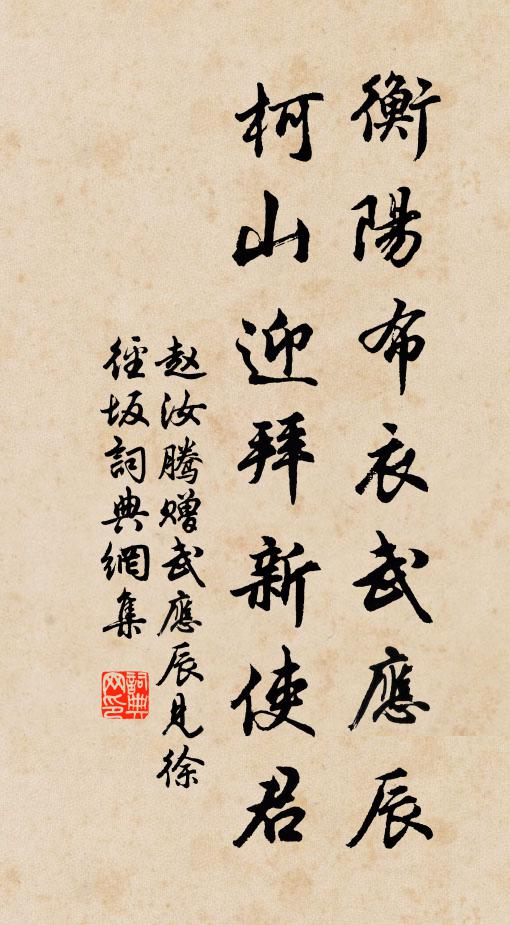 衡陽布衣武應辰
柯山迎拜新使君
赵汝騰赠武應辰見徐
徑坂詞典網集
詞典网印